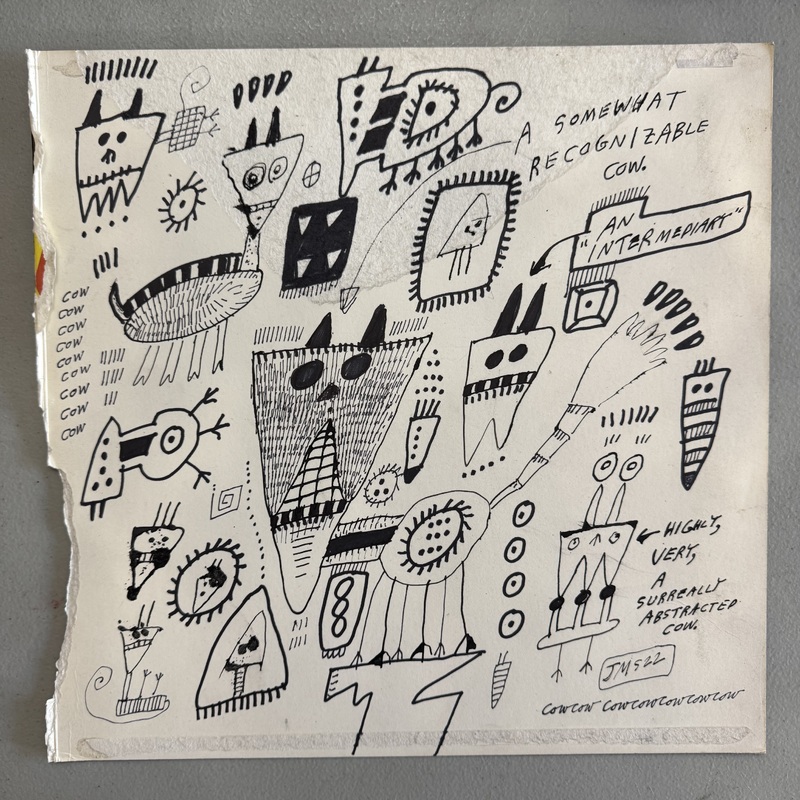 A SOMEWHAT
RECOGNIZABLE
COW.
"AN
INTERMEDIART"
COW
COW
COW
COW
COW
COW
COW
COW
COW
HIGHLY,
VERY,
A
SURREALLY
ABSTRACTED
COW.
JMS22
COWCOW COWCOWCOWCOWCOW